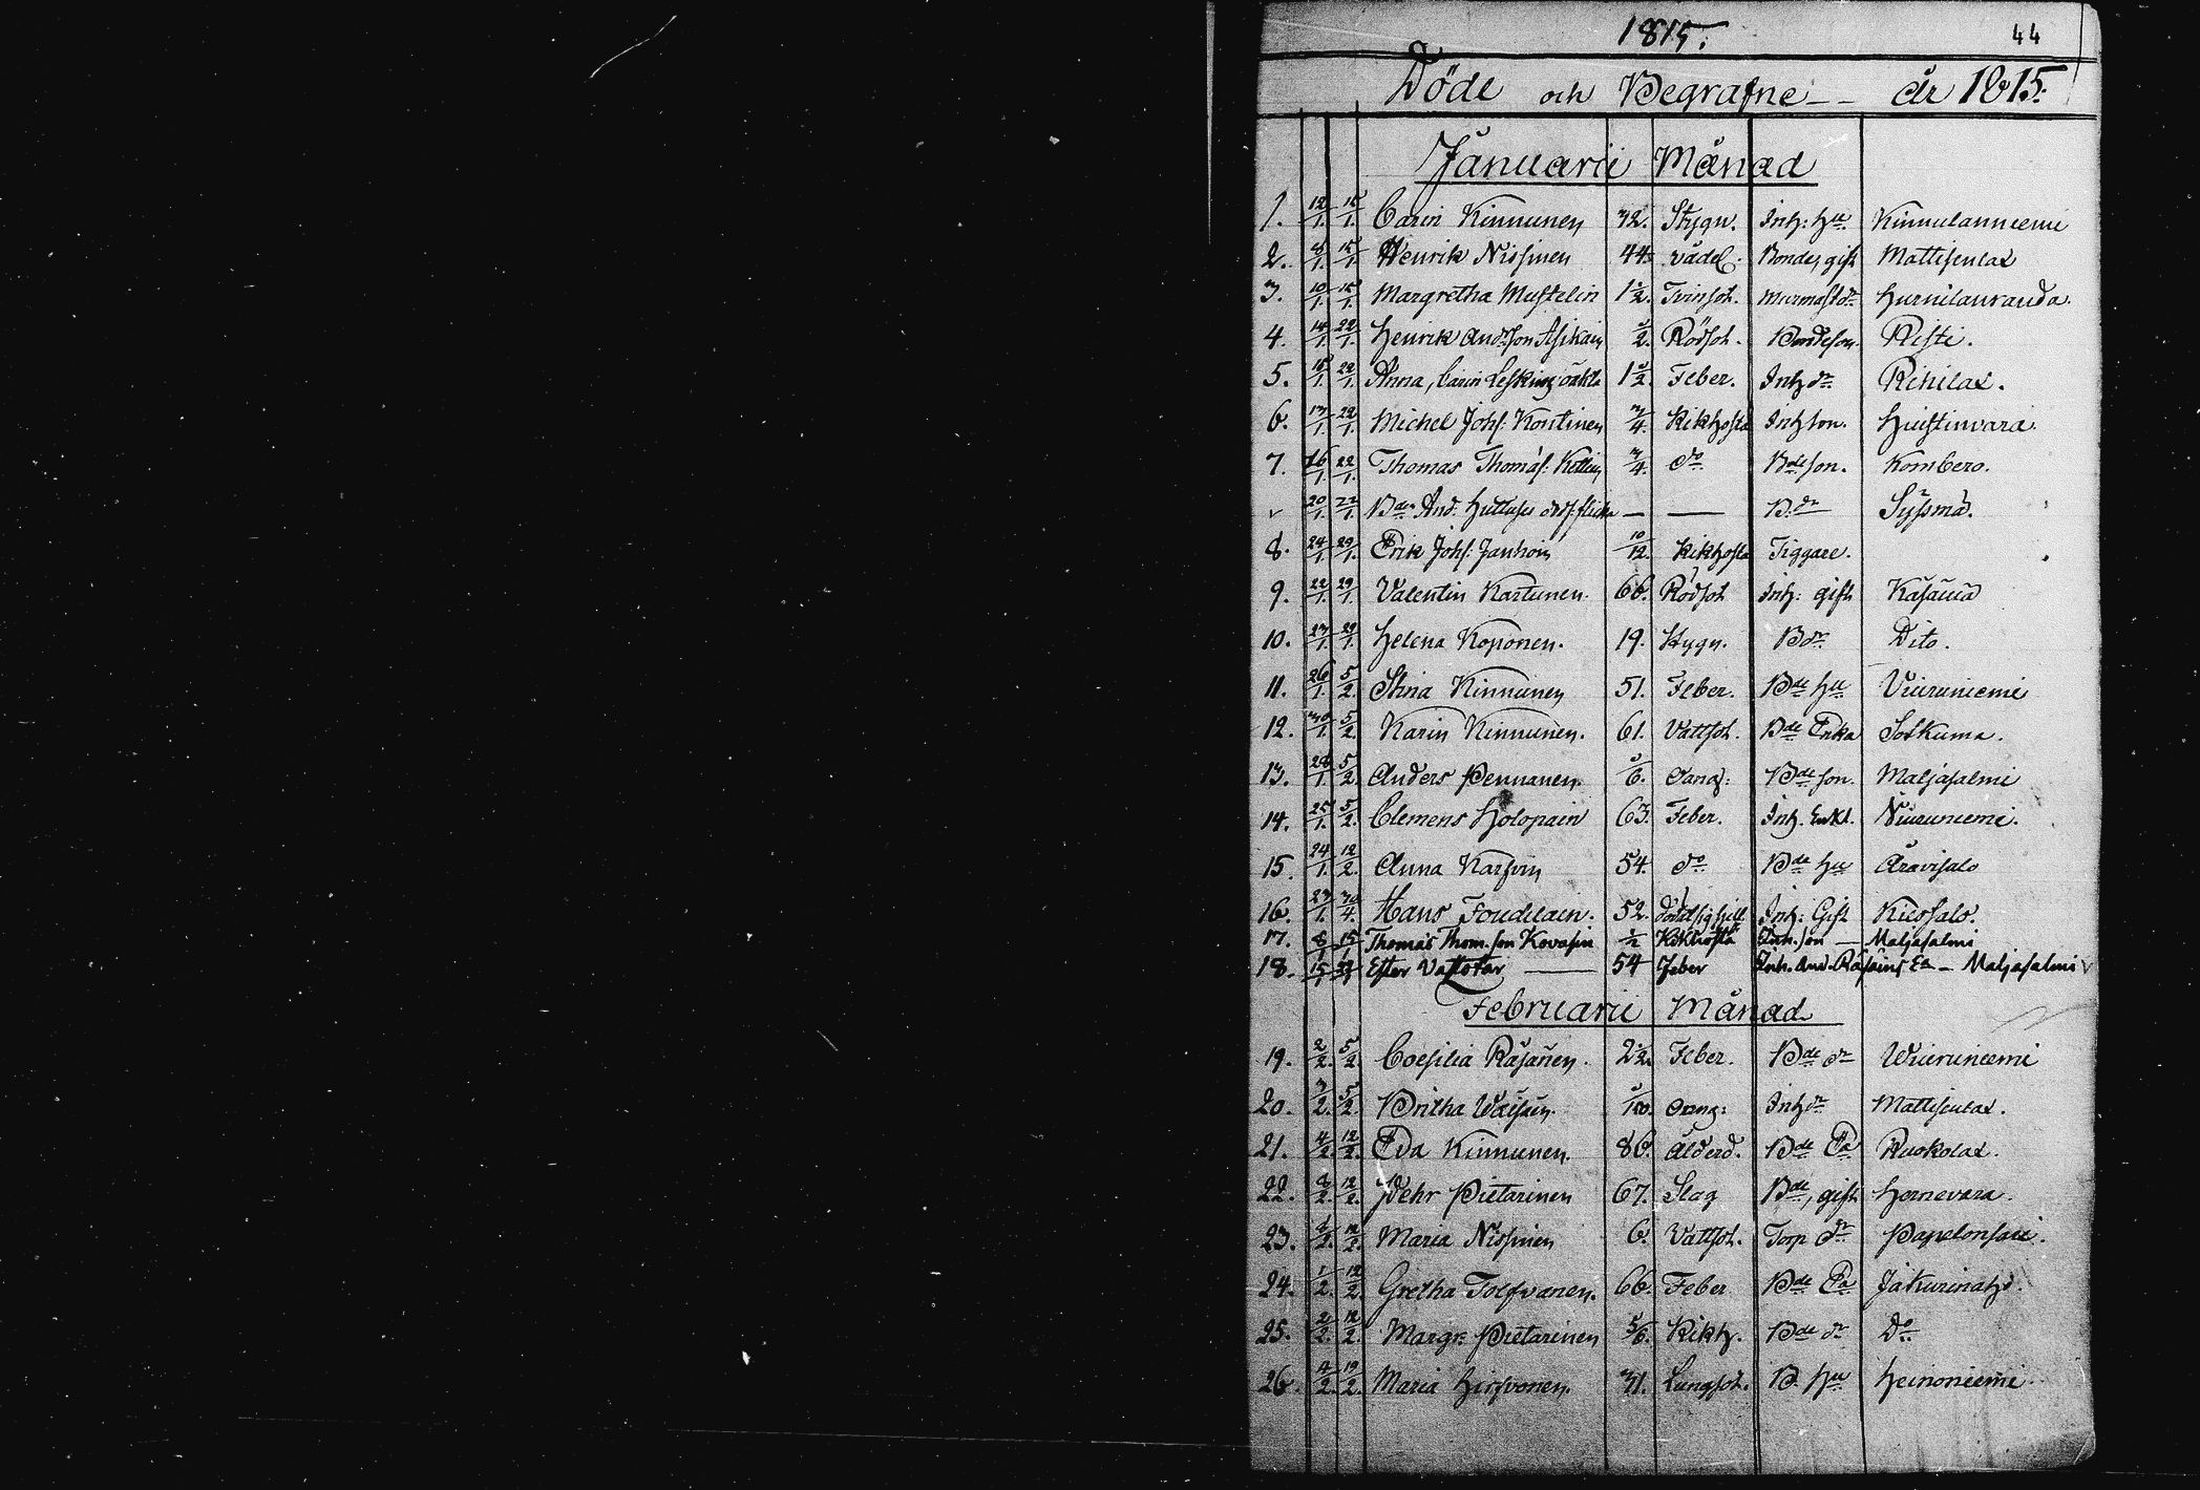 1815. 44
Döde och Begrafne -- år 1815.
Januarii Månad
1. 12/1. 15/1. Carin Kinnunen 32. Stygn. Inh: hu Kinnulanniemi
2. 8/1. 15/1. Henrik Nissinen 44. vådel. Bonde, gift Mattisenlax
3. 10/1. 15/1. Margretha Mustelin 1 1/2. Tvinsot. Hurnilanranda.
4. 14/1. 22/1. Henrik Andsson Asikain 1/2. Rödsot. Bondeson. Risti.
5. 15/1. 22/1. Anna, Carin Leskinz oäkta 1 1/2. Feber. Inh dr Rihilax.
6. 17/1. 22/1. Michel Johs: Kontinen 3/4. Kikhosta Inhson. Huistinvara.
7. 16/1. 22/1. Thomas Thomas: 3/4. do Bdeson. Kombero.
20/1. 22/1. Bdn And: flicka — — B. dr Sysmä.
8. 24/1. 29/1. Erik Johs: Janhoin 10/12. Kikhosta Tiggare.
9. 22/1. 29/1. Valentin Kartunen. 66. Rödsot Inh: gift Käsämä
10. 23/1. 29/1. Helena Koponen. 19. Stygn. B dr Dito.
11. 26/1. 5/2. Stina Kinnunen 51. Feber. Bde hu Viiruniemi
12. 30/1. 5/2. Karin Kinnunen. 61. Vattsot. Bde Enka Sotkuma.
13. 28/1. 5/2. Anders Pennanen. 1/6. Bde son. Maljasalmi
14. 25/1. 5/2. Clemens Holopain 63. Feber. Inh. Enkl. Viiruniemi.
15. 24/1. 12/2. Anna Karvin 54. do Bde hu Aravisalo
16. 23/1. 30/4. Hans 52. Inh: Gift Kiesisalo.
17. 8/1 15/1 Thomas Thom. son Kovasin 1/2 Kikhosta Inh. son — Maljasalmi
18. 15/1 Ester Vattotar — 54 Feber Inh. And. Räsäins Ea — Maljasalmi
Februarii Månad
19. 2/2. 5/2. Coesilia Räsänen. 2 1/2. Feber. Bde dr Wiiruniemi
20. 3/2. 5/2. Britha Väisäin. Inh dr Mattisenlax.
21. 4/2. 12/2. Eva Kinnunen. 86. Ålderd. Bde Ea Ruokolax.
22. 12/2. Pehr Pietarinen 67. Slag Bde, gift Hornevara.
23. 12/2. Maria Nissinen 6. Vattsot. Torp dr Papelonsari.
24. 1/2. 12/2. Gretha Tolfvanen. 66. Feber Bde Ea
25. 2/2. 12/2. Margr: Pietarinen 5/6. Kikh. Bde dr Do
26. 4/2. 19/2. Maria Hirfvonen. 31. Lungsot. B. hu Heinoniemi